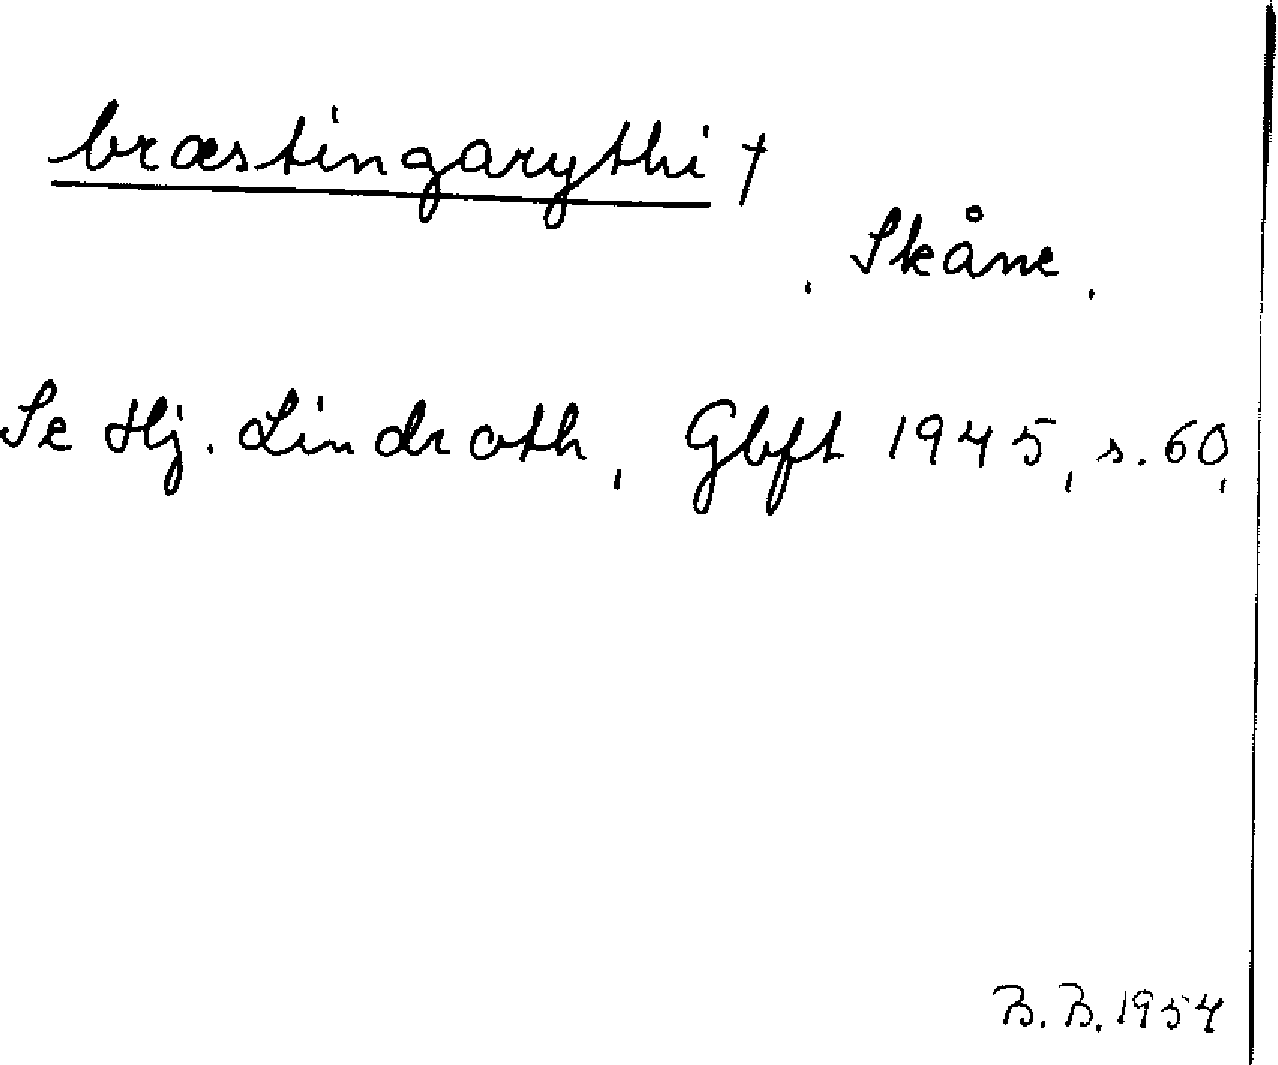 bræstingarythi †
Skåne.
Se Hj. Lindroth, Gbft 1945, s. 60,
B. B. 1954